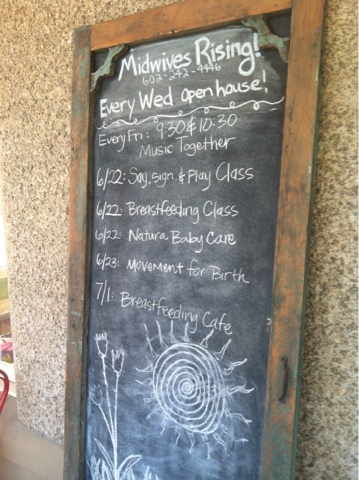 Midwives Rising!
602-242-4446
Every Wed Open house!
Every Fri: 9:30 & 10:30
Music Together
6/22: Say, sign, & Play Class
6/22: Breastfeeding Class
6/22: Natura Baby Care
6/23: Movement for Birth
7/1: Breastfeeding Cafe